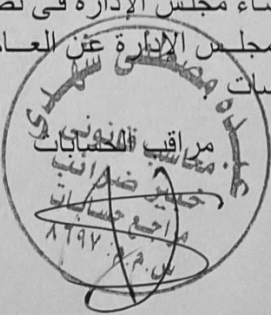 ـاء مجلس الإدارة فى
مجلس الإدارة عن العـا
ـسات
مراقب الحسابات
عبده مصطفى سهدى
محاسب قانونى
خبير ضرائب
مراجع حسابات
س.م.م. ٨٦٩٧